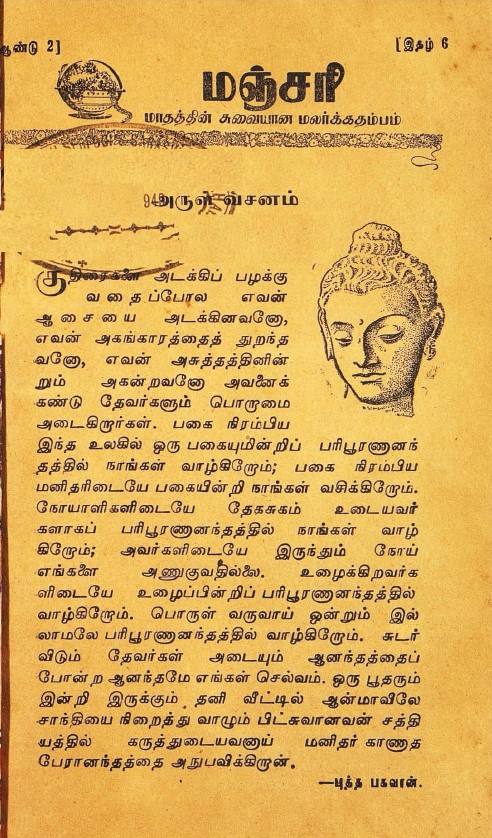 ஆண்டு 2]
[இதழ் 6
மஞ்சரி
மாதத்தின் சுவையான மலர்க்கதம்பம்
அருள் வசனம்
குதிரைகளை அடக்கிப் பழக்கு
வதைப்போல எவன்
ஆசையை அடக்கினவனோ,
எவன் அகங்காரத்தைத் துறந்த
வனோ, எவன் அசுத்தத்தினின்
றும் அகன்றவனோ அவனைக்
கண்டு தேவர்களும் பொறாமை
அடைகிறார்கள். பகை நிரம்பிய
இந்த உலகில் ஒரு பகையுமின்றிப் பரிபூரணானந்
தத்தில் நாங்கள் வாழ்கிறோம்; பகை நிரம்பிய
மனிதரிடையே பகையின்றி நாங்கள் வசிக்கிறோம்.
நோயாளிகளிடையே தேகசுகம் உடையவர்
களாகப் பரிபூரணானந்தத்தில் நாங்கள் வாழ்
கிறோம்; அவர்களிடையே இருந்தும் நோய்
எங்களை அணுகுவதில்லை. உழைக்கிறவர்க
ளிடையே உழைப்பின்றிப் பரிபூரணானந்தத்தில்
வாழ்கிறோம். பொருள் வருவாய் ஒன்றும் இல்
லாமலே பரிபூரணானந்தத்தில் வாழ்கிறோம். சுடர்
விடும் தேவர்கள் அடையும் ஆனந்தத்தைப்
போன்ற ஆனந்தமே எங்கள் செல்வம். ஒரு பூதரும்
இன்றி இருக்கும் தனி வீட்டில் ஆன்மாவிலே
சாந்தியை நிறைத்து வாழும் பிட்சுவானவன் சத்தி
யத்தில் கருத்துடையவனாய் மனிதர் காணாத
பேரானந்தத்தை அநுபவிக்கிறான்.
—புத்த பகவான்.